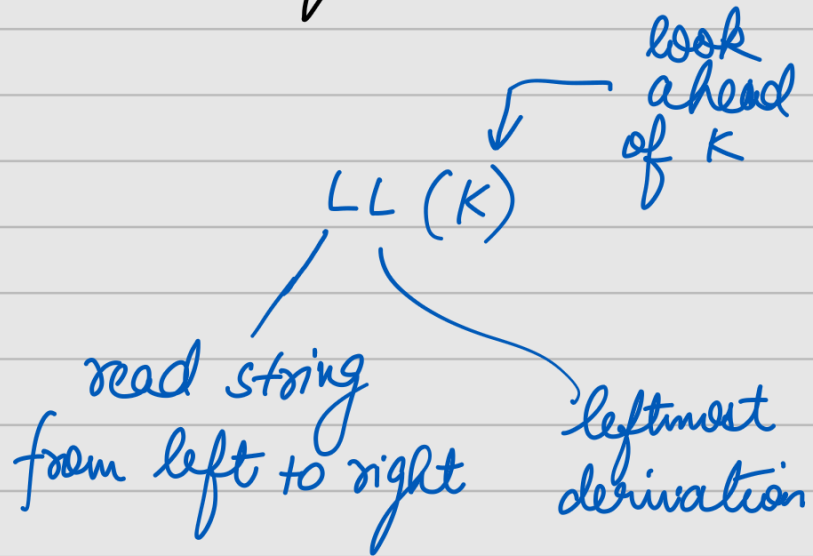 look
ahead
of K
LL (K)
read string
from left to right
leftmost
derivation